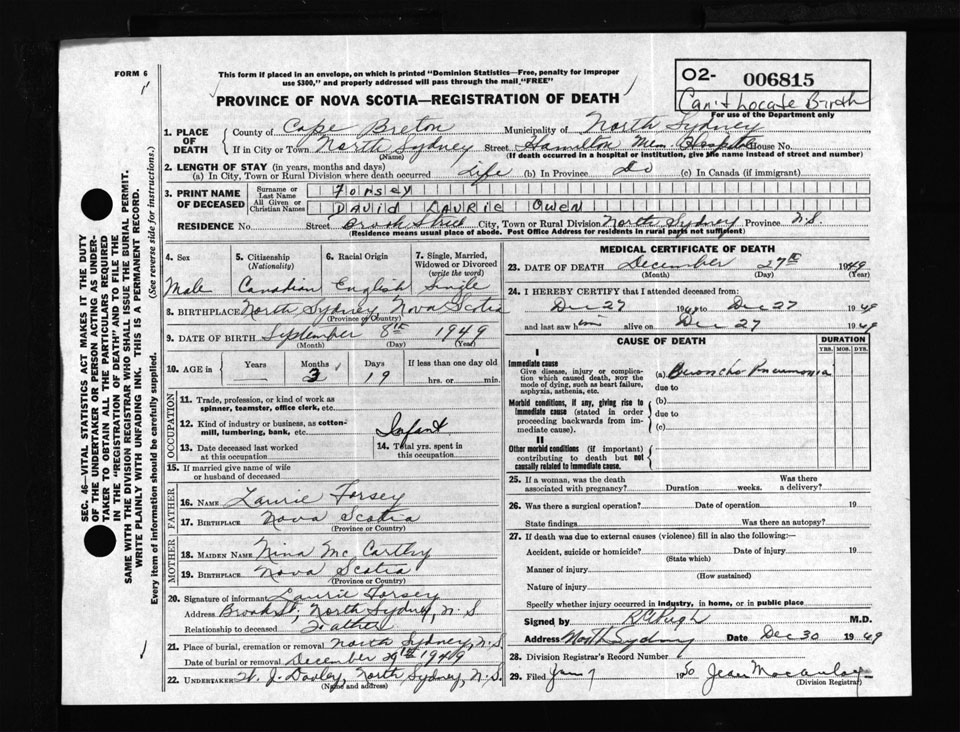 FORM 6
This form if placed in an envelope, on which is printed "Dominion Statistics—Free, penalty for improper
use $300," and properly addressed will pass through the mail "FREE"
PROVINCE OF NOVA SCOTIA—REGISTRATION OF DEATH
02- 006815
Can't Locate Birth
For use of the Department only
1. PLACE OF DEATH
County of Cape Breton Municipality of North Sydney
If in City or Town North Sydney Street Hamilton Mem. Hospital House No.
(Name) (If death occurred in a hospital or institution, give the name instead of street and number)
2. LENGTH OF STAY (in years, months and days)
(a) In City, Town or Rural Division where death occurred Life (b) In Province Do (c) In Canada (if immigrant)
3. PRINT NAME OF DECEASED
Surname or Last Name Forsey
All Given or Christian Names DAVID LAURIE OWEN
RESIDENCE No. Street Brook Street City, Town or Rural Division North Sydney Province N.S.
(Residence means usual place of abode. Post Office Address for residents in rural parts not sufficient)
4. Sex
Male
5. Citizenship (Nationality)
Canadian
6. Racial Origin
English
7. Single, Married, Widowed or Divorced (write the word)
Single
8. BIRTHPLACE North Sydney Nova Scotia
(Province or Country)
9. DATE OF BIRTH September 8th 1949
(Month) (Day) (Year)
10. AGE in Years Months 3 Days 19 If less than one day old
hrs. or min.
OCCUPATION
11. Trade, profession, or kind of work as spinner, teamster, office clerk, etc.
12. Kind of industry or business, as cotton-mill, lumbering, bank, etc. Infant
13. Date deceased last worked at this occupation
14. Total yrs. spent in this occupation
15. If married give name of wife or husband of deceased
FATHER
16. NAME Laurie Forsey
17. BIRTHPLACE Nova Scotia
(Province or Country)
MOTHER
18. MAIDEN NAME Nina Mc Carthy
19. BIRTHPLACE Nova Scotia
(Province or Country)
20. Signature of informant Laurie Forsey
Address Brook St., North Sydney, N.S
Relationship to deceased Father
21. Place of burial, cremation or removal North Sydney, N.S.
Date of burial or removal December 29th 1949
22. UNDERTAKER W. J. Dooley, North Sydney, N.S.
(Name and address)
MEDICAL CERTIFICATE OF DEATH
23. DATE OF DEATH December 27th 1949
(Month) (Day) (Year)
24. I HEREBY CERTIFY that I attended deceased from:
Dec 27 1949 to Dec 27 1949
and last saw him alive on Dec 27 1949
CAUSE OF DEATH
DURATION
YRS. MOS. DYS.
I
Immediate cause
Give disease, injury or complication which caused death, NOT the mode of dying, such as heart failure, asphyxia, asthenia, etc.
(a) Broncho Pneumonia
due to
Morbid conditions, if any, giving rise to immediate cause (stated in order proceeding backwards from immediate cause).
(b)
due to
(c)
II
Other morbid conditions (if important) contributing to death but not causally related to immediate cause.
25. If a woman, was the death associated with pregnancy? Duration weeks. Was there a delivery?
26. Was there a surgical operation? Date of operation 19
State findings Was there an autopsy?
27. If death was due to external causes (violence) fill in also the following:—
Accident, suicide or homicide? Date of injury 19
(State which)
Manner of injury
(How sustained)
Nature of injury
Specify whether injury occurred in industry, in home, or in public place
Signed by R C Pugh M.D.
Address North Sydney Date Dec 30 1949
28. Division Registrar's Record Number
29. Filed Jan 7 1950 Jean Macaulay
(Division Registrar)
SEC. 46—VITAL STATISTICS ACT MAKES IT THE DUTY
OF THE UNDERTAKER OR PERSON ACTING AS UNDER-
TAKER TO OBTAIN ALL THE PARTICULARS REQUIRED
IN THE "REGISTRATION OF DEATH" AND TO FILE THE
SAME WITH THE DIVISION REGISTRAR WHO SHALL ISSUE THE BURIAL PERMIT.
WRITE PLAINLY WITH UNFADING INK. THIS IS A PERMANENT RECORD.
Every item of information should be carefully supplied. (See reverse side for instructions.)